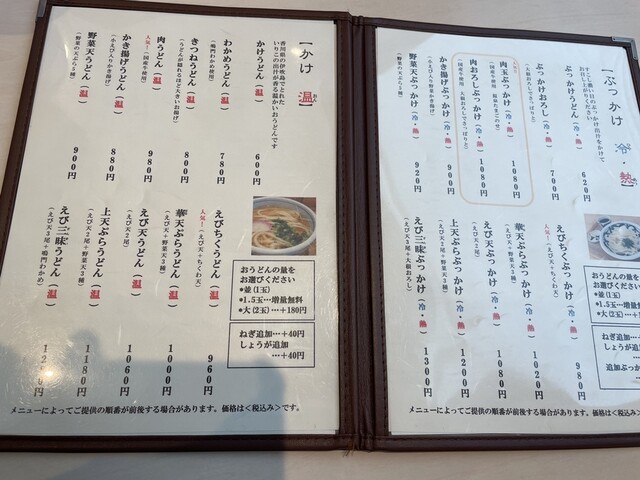 【かけ 温】
香川県の伊吹島でとれた
いりこの出汁が香る温かいおうどんです
かけうどん（温） 600円
わかめうどん（温） 780円
（鳴門わかめ使用）
きつねうどん（温） 800円
（うどんが隠れるほど大きいお揚げ）
人気！
肉うどん（温） 980円
（国産牛使用）
かき揚げうどん（温） 880円
（小えび入りかき揚げ）
野菜天うどん（温） 900円
（野菜の天ぷら5種）
人気！
えびちくうどん（温） 960円
（えび天＋ちくわ天）
華天ぷらうどん（温） 1000円
（えび天＋野菜天3種）
えび天うどん（温） 1060円
（えび天2尾）
上天ぷらうどん（温） 1180円
（えび天2尾＋野菜天3種）
えび三昧うどん（温）
（えび天3尾＋鳴門わかめ）
おうどんの量を
お選びください
●並(1玉)
●1.5玉…増量無料
●大(2玉)…＋180円
ねぎ追加…＋40円
しょうが追加
…＋40円
メニューによってご提供の順番が前後する場合があります。価格は＜税込み＞です。
【ぶっかけ 冷・熱】
すこし濃い目のぶっかけ出汁をかけて
お召し上がりください
ぶっかけうどん（冷・熱） 620円
ぶっかけおろし（冷・熱） 700円
（大根おろしでさっぱりと）
肉玉ぶっかけ（冷・熱） 1080円
（国産牛使用 温泉たまごのせ）
肉おろしぶっかけ（冷・熱） 1080円
（国産牛使用 大根おろしでさっぱりと）
かき揚げぶっかけ（冷・熱） 900円
（小えび入り野菜かき揚げ）
野菜天ぶっかけ（冷・熱） 920円
（野菜の天ぷら5種）
人気！
えびちくぶっかけ（冷・熱） 980円
（えび天＋ちくわ天）
華天ぷらぶっかけ（冷・熱） 1020円
（えび天＋野菜天3種）
えび天ぶっかけ（冷・熱） 1080円
（えび天2尾）
上天ぷらぶっかけ（冷・熱） 1200円
（えび天2尾＋野菜天3種）
えび三昧ぶっかけ（冷・熱） 1300円
（えび天3尾＋大根おろし）
おうどんの量を
お選びください
●並(1玉)
●1.5玉…増量無
●大(2玉)…＋1
ねぎ追加…
しょうが追加
追加ぶっか
メニューによってご提供の順番が前後する場合があります。価格は＜税込み＞